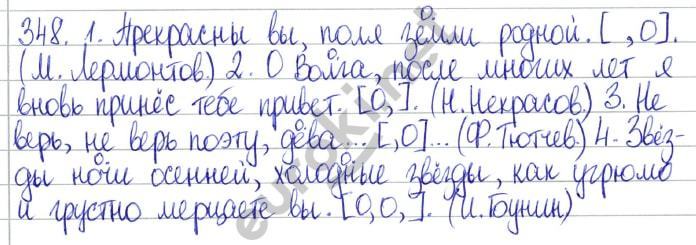 348. 1. Прекрасны вы, поля земли родной. [ , O].
(М. Лермонтов.) 2. О Волга, после многих лет я
вновь принёс тебе привет. [O, ]. (Н. Некрасов.) 3. Не
верь, не верь поэту, дева... [, O]... (Ф. Тютчев.) 4. Звёз-
ды ночи осенней, холодные звёзды, как угрюмо
и грустно мерцаете вы. [O, O, ]. (И. Бунин)